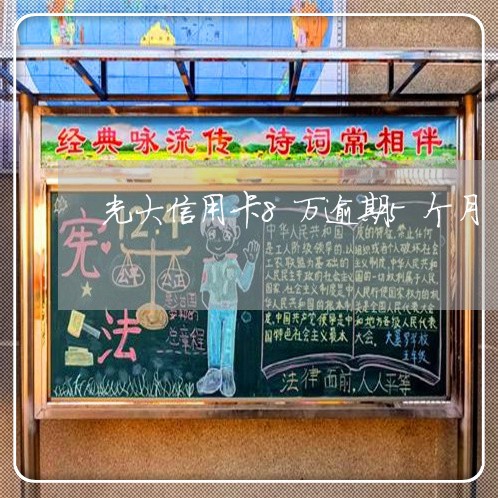 经典咏流传 诗词常相伴
光大信用卡8万逾期5个月
12.4
宪
法
公平 公正
的
总章程
中华人民共和国
是工人阶级领导的,以
工农联盟为基础的
人民民主专政的社会主义
国家。社会主义制度是中
华人民共和国的根本制
度。中国共产党领导是中
国特色社会主义最本
质的特征。禁止任何
组织或者个人破坏社会
主义制度。中华人民共和
国的一切权利属于人民。
人民行使国家权力的机
关是全国人民代表大会
和地方各级人民代表
大会。
学校
五年级
法律面前,人人平等